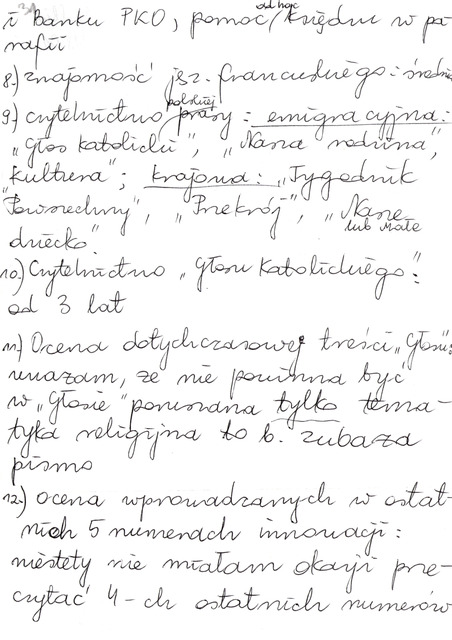 i Banku PKO, pomoc księdzu w pa-
rafii
8.) znajomość jęz. francuskiego: średnia
9.) czytelnictwo polskiej prasy: emigracyjna:
"Głos Katolicki", "Nasza rodzina",
"Kultura"; krajowa: "Tygodnik
Powszechny", "Przekrój", "Nasze
lub Małe
dziecko".
10.) Czytelnictwo "Głosu Katolickiego":
od 3 lat
11.) Ocena dotychczasowej treści "Głosu":
uważam, że nie powinna być
w "Głosie" poruszana tylko tema-
tyka religijna to b. zubaża
pismo
12.) Ocena wprowadzanych w ostat-
nich 5 numerach innowacji:
niestety nie miałam okazji prze-
czytać 4-ch ostatnich numerów